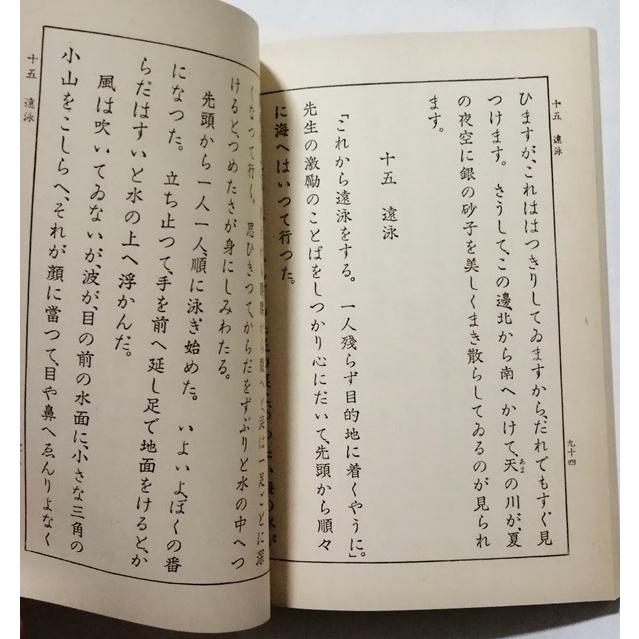 十五 遠泳
九十四
ひますが、これははつきりしてゐますから、だれでもすぐ見
つけます。さうして、この邊北から南へかけて、天の川が、夏
あま
の夜空に銀の砂子を美しくまき散らしてゐるのが見られ
ます。
十五 遠泳
「これから遠泳をする。一人殘らず目的地に着くやうに」。
先生の激勵のことばをしつかり心にだいて、先頭から順々
に海へはいつて行つた。
くなつて行く。思ひきつてからだをずぶりと水の中へつ
けると、つめたさが身にしみわたる。
先頭から一人一人、順に泳ぎ始めた。いよいよ、ぼくの番
になつた。立ち止つて、手を前へ延し足で地面をけると、か
らだはすいと水の上へ浮かんだ。
風は吹いてゐないが、波が、目の前の水面に、小さな三角の
小山をこしらへ、それが顔に當つて、目や鼻へゑんりよなく
十五 遠泳